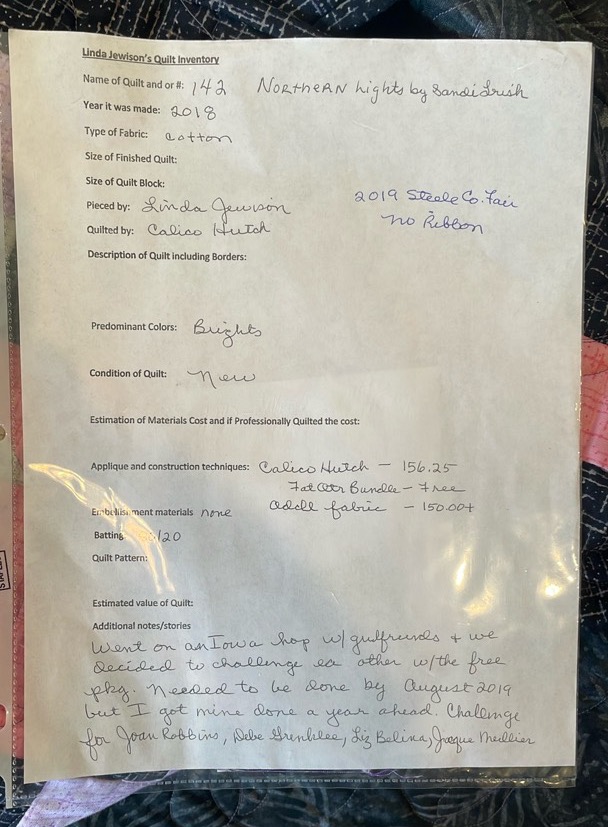 Linda Jewison's Quilt Inventory
Name of Quilt and or #: 142 Northern Lights by Sandi Irish
Year it was made: 2018
Type of Fabric: Cotton
Size of Finished Quilt:
Size of Quilt Block:
Pieced by: Linda Jewison
2019 Steele Co. Fair
Quilted by: Calico Hutch
No Ribbon
Description of Quilt including Borders:
Predominant Colors: Brights
Condition of Quilt: New
Estimation of Materials Cost and if Professionally Quilted the cost:
Applique and construction techniques: Calico Hutch - 156.25
Fat Qtr Bundle - Free
Embellishment materials none
Addll fabric - 150.00+
Batting /20
Quilt Pattern:
Estimated value of Quilt:
Additional notes/stories
Went on an Iowa hop w/ gulfriends + we
decided to challenge ea other w/the free
pkg. Needed to be done by August 2019
but I got mine done a year ahead. Challenge
for Joan Robbins, Debe Liz Belina, Jacque